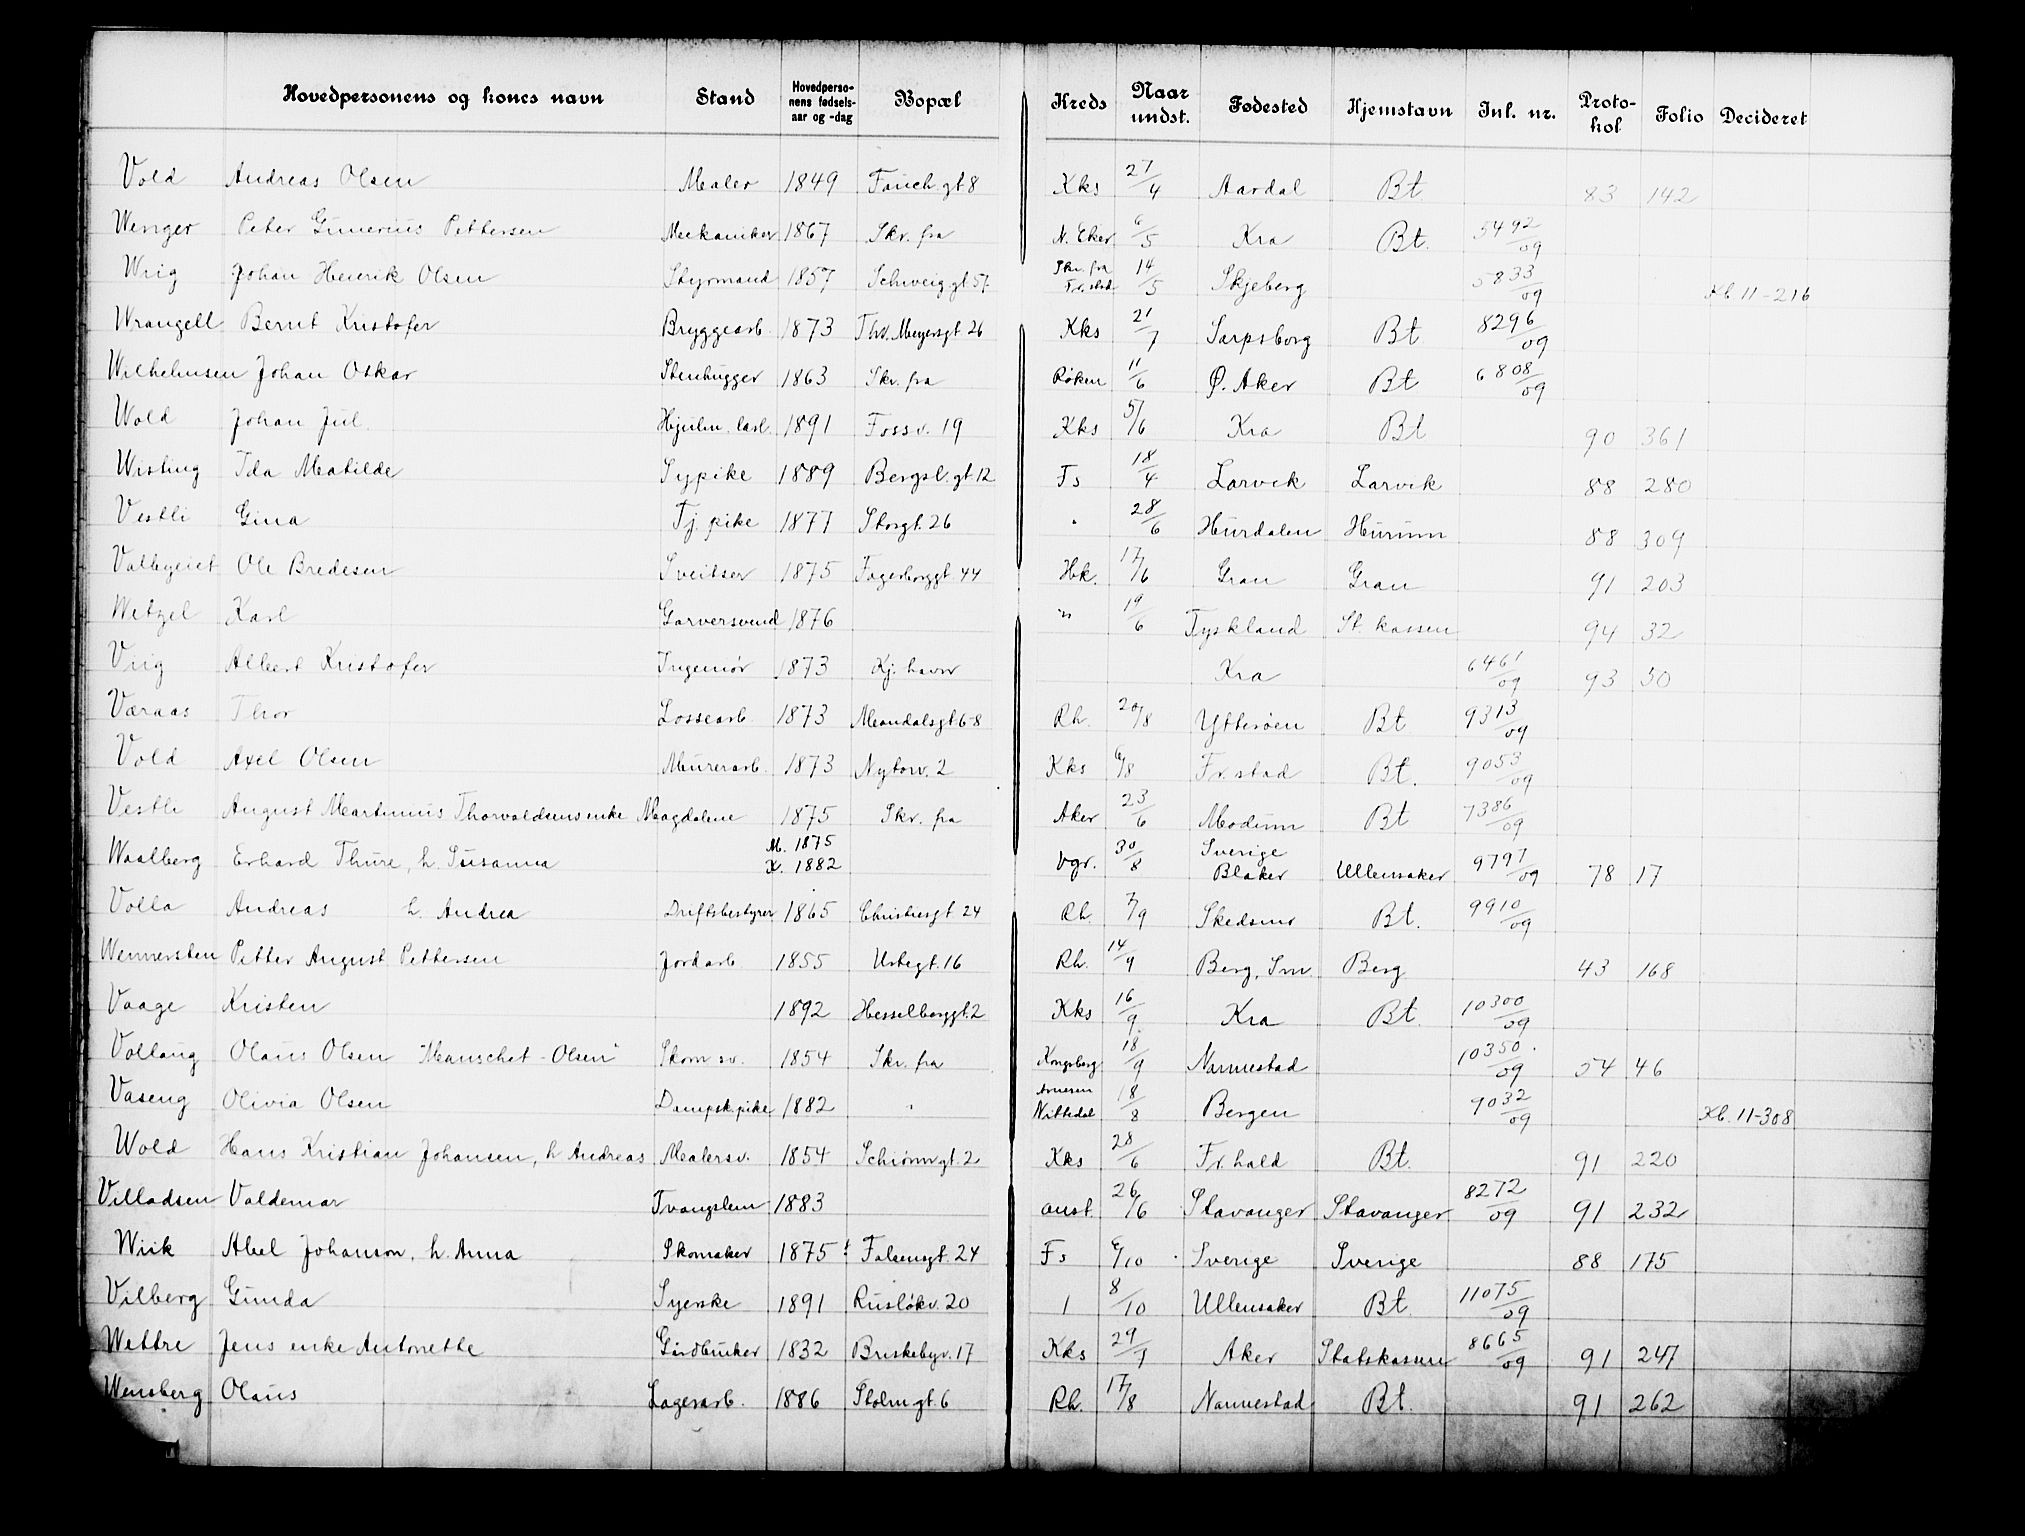 Hovedpersonens og kones navn Stand Hovedperso-nens fødsels-aar og -dag Bopæl Kreds Naar undst. Fødested Hjemstavn Inl. nr. Proto-kol Folio Decideret
Vold Andreas Olsen Maler 1849 Fauch.gt 8 Kks 27/4 Aardal Bt 83 142
Wenger Peter Gunerius Pettersen Mekaniker 1867 Skr. fra N. Eker 6/5 Kra Bt. 5492/09
Wiig Johan Henrik Olsen Styrmand 1857 Schweig.gt 57 Skr. fra Fr.stad 14/5 Skjeberg 5833/09 Kb 11-216
Wrangell Bernt Kristofer Bryggearb. 1873 Thv. Meyersgt 26 Kks 21/7 Sarpsborg Bt 8296/09
Wilhelmsen Johan Oskar Stenhugger 1863 Skr. fra Røken 11/6 Ø. Aker Bt 6808/09
Wold Johan Jul. Hjulm. lærl. 1891 Fossv. 19 Kks 5/6 Kra Bt 90 361
Wisting Ida Matilde Sypike 1889 Bergsl.gt 12 Fs 18/4 Larvik Larvik 88 280
Vestli Gina Tj. pike 1877 Storgt. 26 " 28/6 Hurdalen Hurum 88 309
Valbyeiet Ole Bredesen Sveitser 1875 Fagerborggt. 44 Hk. 17/6 Gran Gran 91 203
Wetzel Karl Garversvend 1876 " 19/6 Tyskland St. kassen 94 32
Viig Albert Kristofer Ingeniør 1873 Kj. havn Kra 6461/09 93 50
Væraas Thor Lossearb 1873 Mandalsgt 6-8 Rh. 20/8 Ytterøen Bt 9313/09
Vold Axel Olsen Murerarb. 1873 Nytorv. 2 Kks 6/8 Fr.stad Bt. 9053/09
Vestli August Martinius Thorvaldsens enke Magdalene 1875 Skr. fra Aker 23/6 Modum Bt 7386/09
Waalberg Erhard Thure, h. Susanna M. 1875 K. 1882 Vgr. 30/8 Sverige Blaker Ullensaker 9797/09 78 17
Volla Andreas h. Andrea Driftsbestyrer 1865 Christiesgt 24 Rh. 7/9 Skedsmo Bt. 9910/09
Wennersten Petter August Pettersen Jordarb 1855 Urtegt. 16 Rh. 14/9 Berg, Sm. Berg 43 168
Vaage Kristen 1892 Hesselberggt. 2 Kks 16/9. Kra Bt. 10300/09
Vollaug Olaus Olsen "Manschet-Olsen" Skom.sv. 1854 Skr. fra Kongsberg 18/9 Nannestad 10350/09 54 46
Vaseng Olivia Olsen Dampsk.pike 1882 " Nittedal 18/8 Bergen 9032/09 Kb. 11-308
Wold Hans Kristian Johansen, h Andreas Malersv. 1854 Schiønn.gt. 2 Kks 28/6 Fr.hald Bt. 91 220
Villadsen Valdemar Tvangslem 1883 anst. 26/6 Stavanger Stavanger 8272/09 91 232
Wiik Abel Johanson, h. Anna Skomaker 1875 Falsensgt. 24 Fs 6/10 Sverige Sverige 88 175
Vilberg Gunda Syerske 1891 Rusløkv. 20 1 8/10 Ullensaker Bt. 11075/09
Wettre Jens enke Antonette Gårdbruker 1832 Briskebyv. 17 Kks 29/7 Aker Statskassen 8665/09 91 247
Wensberg Olaus Lagerarb. 1886 Stolm.gt. 6 Rh. 17/8 Nannestad Bt. 91 262